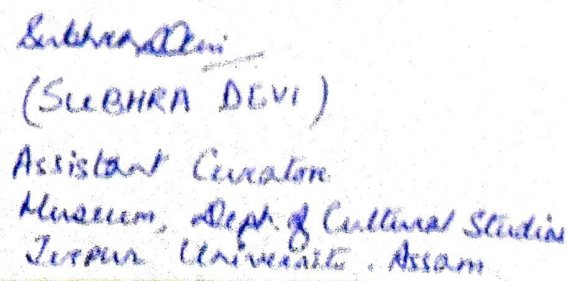 Subhra Devi
(SUBHRA DEVI)
Assistant Curator
Museum, Dept. of Cultural Studies
Tezpur University. Assam